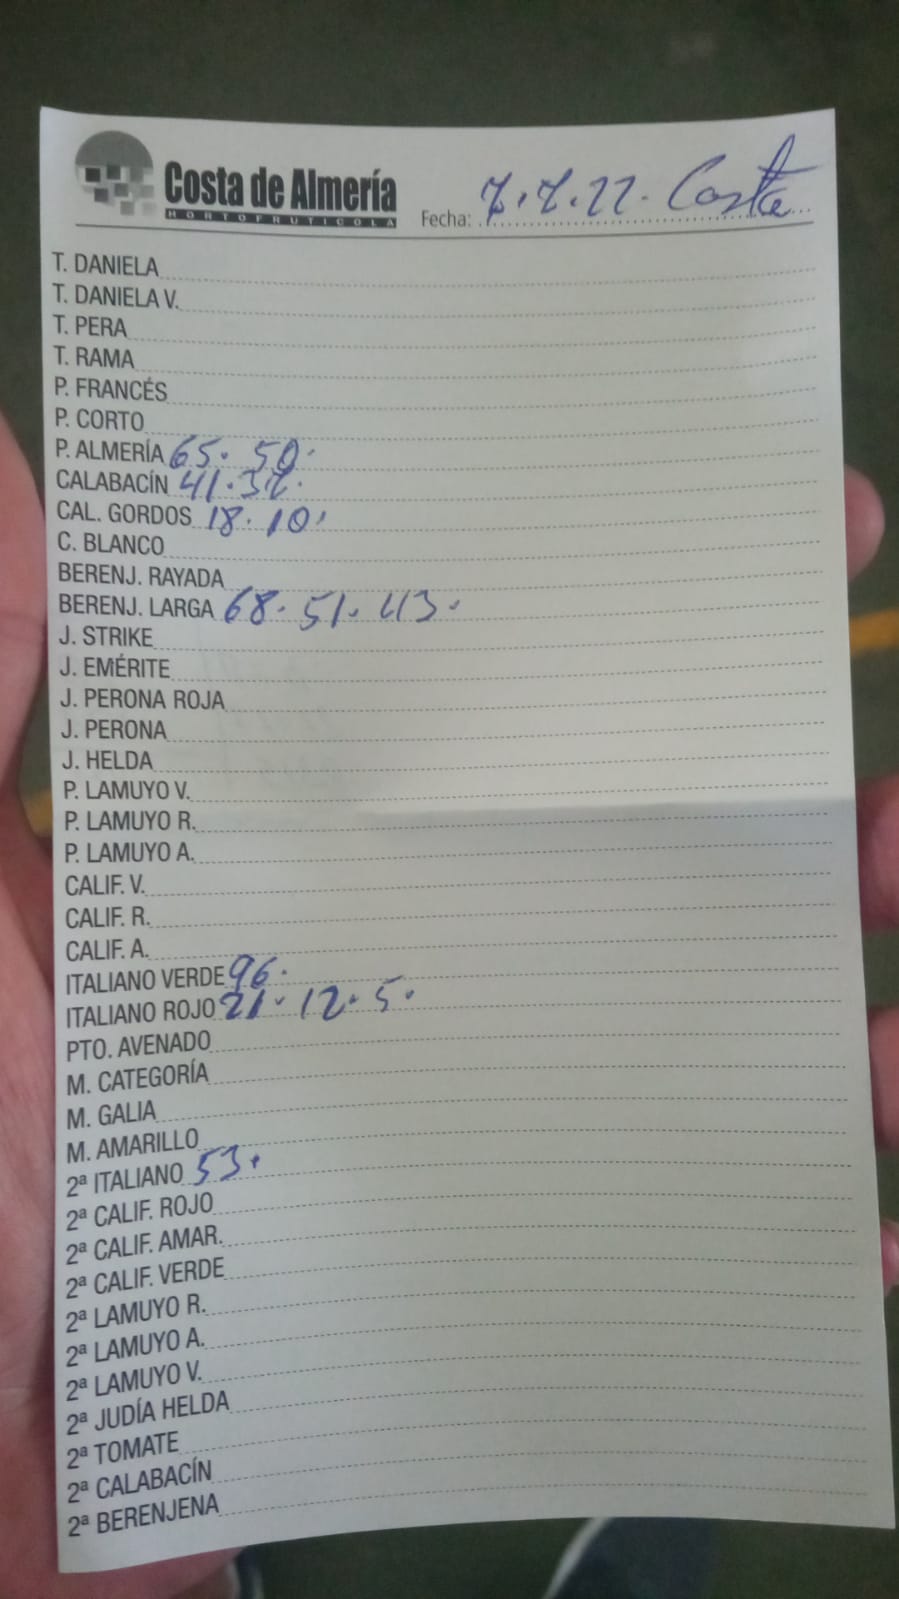 Costa de Almería
HORTOFRUTICOLA
Fecha: 7.7.22. Costa
T. DANIELA
T. DANIELA V.
T. PERA
T. RAMA
P. FRANCÉS
P. CORTO
P. ALMERÍA 65. 50.
CALABACÍN 41.
CAL. GORDOS 18. 10.
C. BLANCO
BERENJ. RAYADA
BERENJ. LARGA 68. 51. 43.
J. STRIKE
J. EMÉRITE
J. PERONA ROJA
J. PERONA
J. HELDA
P. LAMUYO V.
P. LAMUYO R.
P. LAMUYO A.
CALIF. V.
CALIF. R.
CALIF. A.
ITALIANO VERDE 96.
ITALIANO ROJO 21. 12. 5.
PTO. AVENADO
M. CATEGORÍA
M. GALIA
M. AMARILLO
2ª ITALIANO 53.
2ª CALIF. ROJO
2ª CALIF. AMAR.
2ª CALIF. VERDE
2ª LAMUYO R.
2ª LAMUYO A.
2ª LAMUYO V.
2ª JUDÍA HELDA
2ª TOMATE
2ª CALABACÍN
2ª BERENJENA